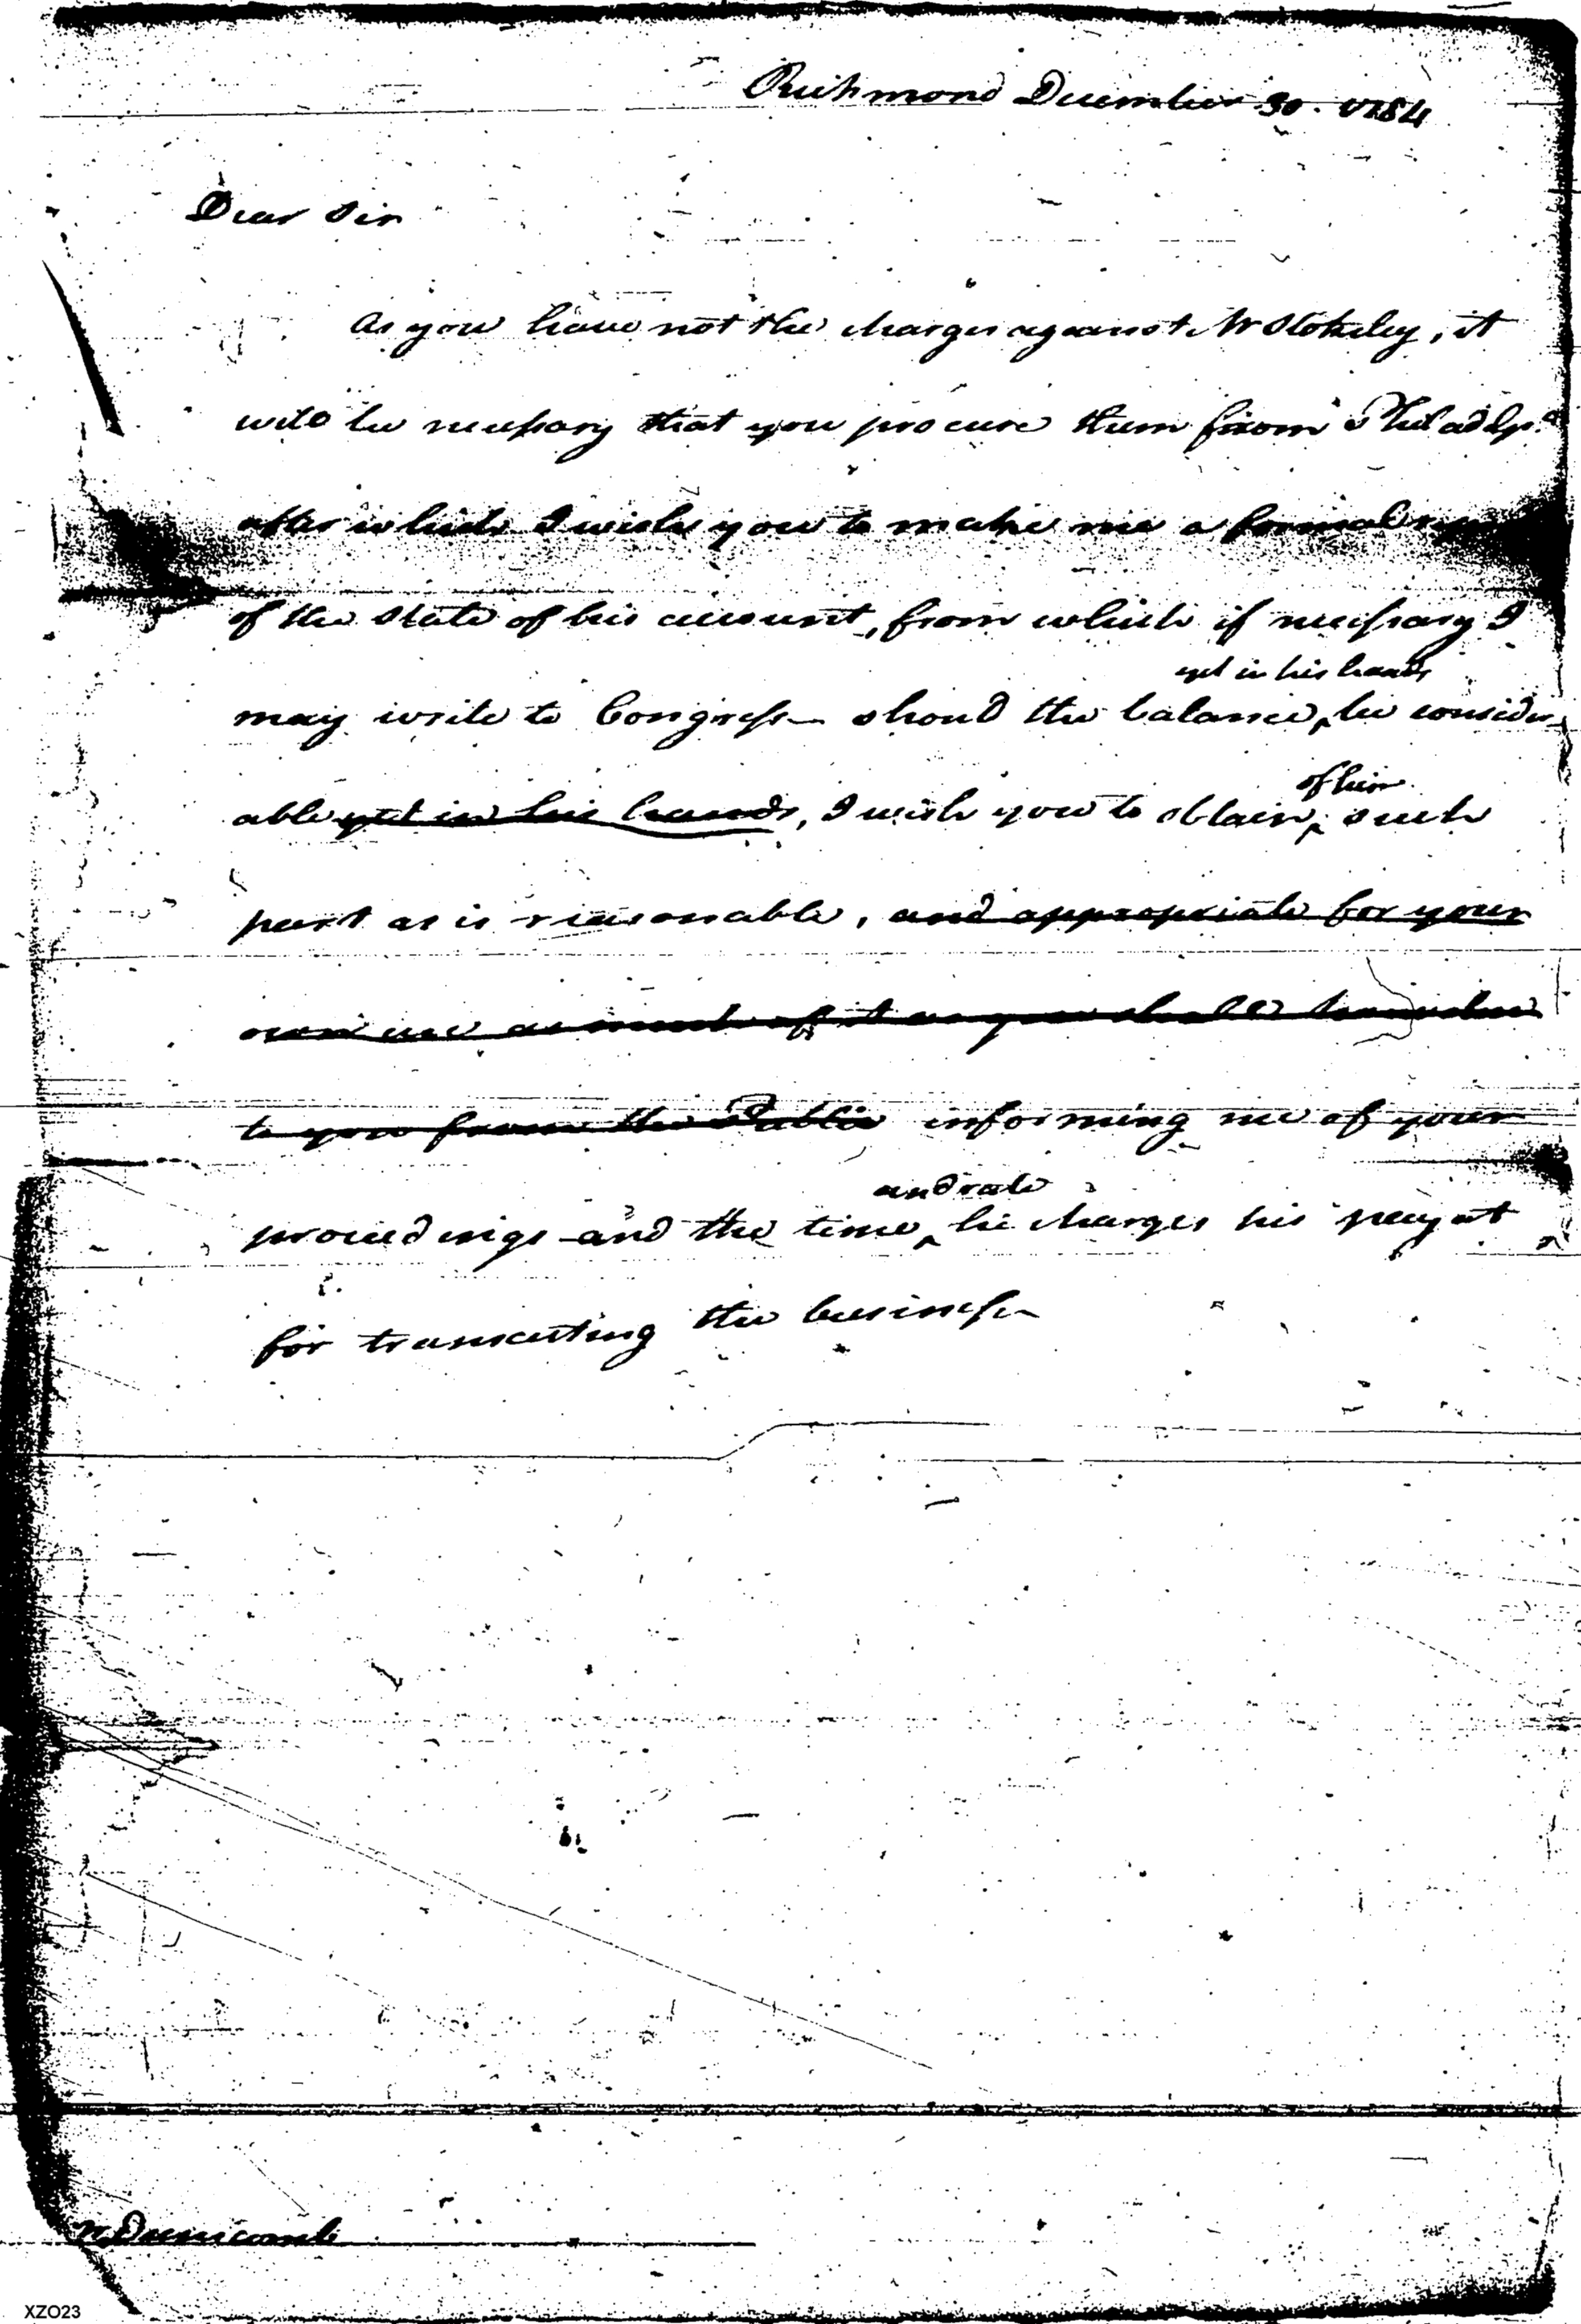 Richmond December 30. 1784
Dear Sir
As you have not the charges against Mr Stokeley, it
will be necessary that you procure them from Philadelpa
after which I wish you to make me a formal
of the state of his account, from which if necessary I
yet in his hands
may write to Congress – should the balance ‸ be consider
able yet in his hands, I wish you to obtain ‸ such
of him
part as is reasonable, and appropriate for your
own use as much of it as you shall
to you from the Public informing me of your
and rate
proceedings and the time ‸ he charges his pay at
for transacting the business
Mr. Dunscomb
XZO23